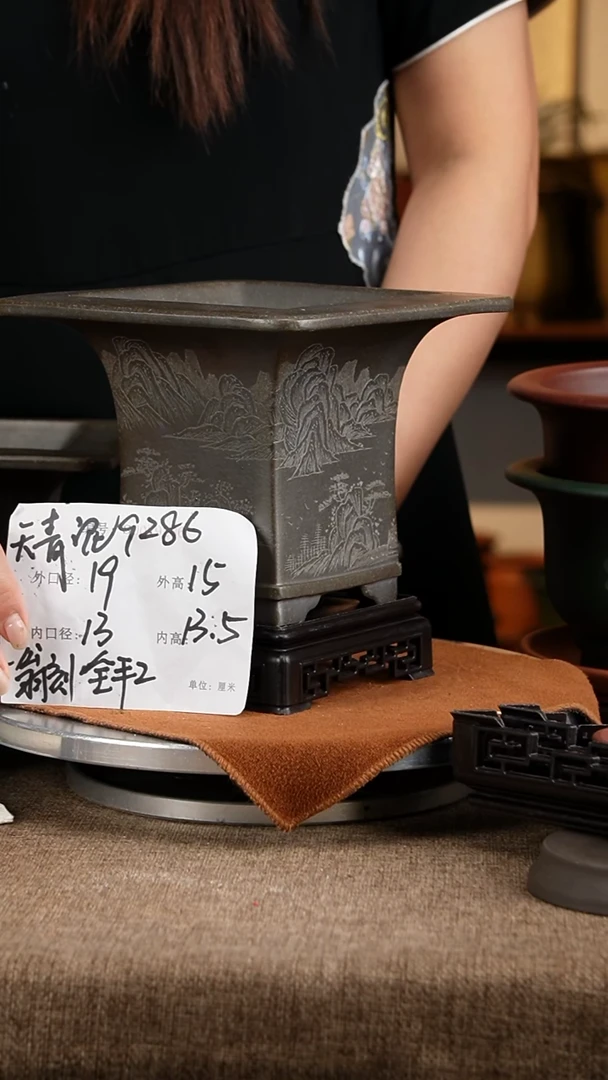 天青泥19286
外口径:19 外高:15
内口径:13 内高:13.5
刻 全手2
单位:厘米